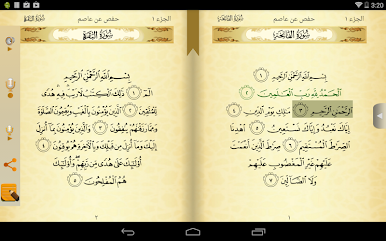 3:20
الجزء ١
حفص عن عاصم
سُورَةُ الفَاتِحَةِ
سُورَةُ الْفَاتِحَةِ
بِسْمِ اللَّهِ الرَّحْمَٰنِ الرَّحِيمِ ١
الْحَمْدُ لِلَّهِ رَبِّ الْعَالَمِينَ ٢
الرَّحْمَٰنِ الرَّحِيمِ ٣ مَالِكِ يَوْمِ الدِّينِ ٤
إِيَّاكَ نَعْبُدُ وَإِيَّاكَ نَسْتَعِينُ ٥ اهْدِنَا
الصِّرَاطَ الْمُسْتَقِيمَ ٦ صِرَاطَ الَّذِينَ أَنْعَمْتَ
عَلَيْهِمْ غَيْرِ الْمَغْضُوبِ عَلَيْهِمْ
وَلَا الضَّالِّينَ ٧
١
الجزء ١
حفص عن عاصم
سُورَةُ البَقَرَةِ
سُورَةُ الْبَقَرَةِ
بِسْمِ اللَّهِ الرَّحْمَٰنِ الرَّحِيمِ
الم ١ ذَٰلِكَ الْكِتَابُ لَا رَيْبَ فِيهِ هُدًى
لِلْمُتَّقِينَ ٢ الَّذِينَ يُؤْمِنُونَ بِالْغَيْبِ وَيُقِيمُونَ الصَّلَاةَ
وَمِمَّا رَزَقْنَاهُمْ يُنْفِقُونَ ٣ وَالَّذِينَ يُؤْمِنُونَ بِمَا أُنْزِلَ
إِلَيْكَ وَمَا أُنْزِلَ مِنْ قَبْلِكَ وَبِالْآخِرَةِ هُمْ يُوقِنُونَ ٤
أُولَٰئِكَ عَلَىٰ هُدًى مِنْ رَبِّهِمْ وَأُولَٰئِكَ
هُمُ الْمُفْلِحُونَ ٥
٢